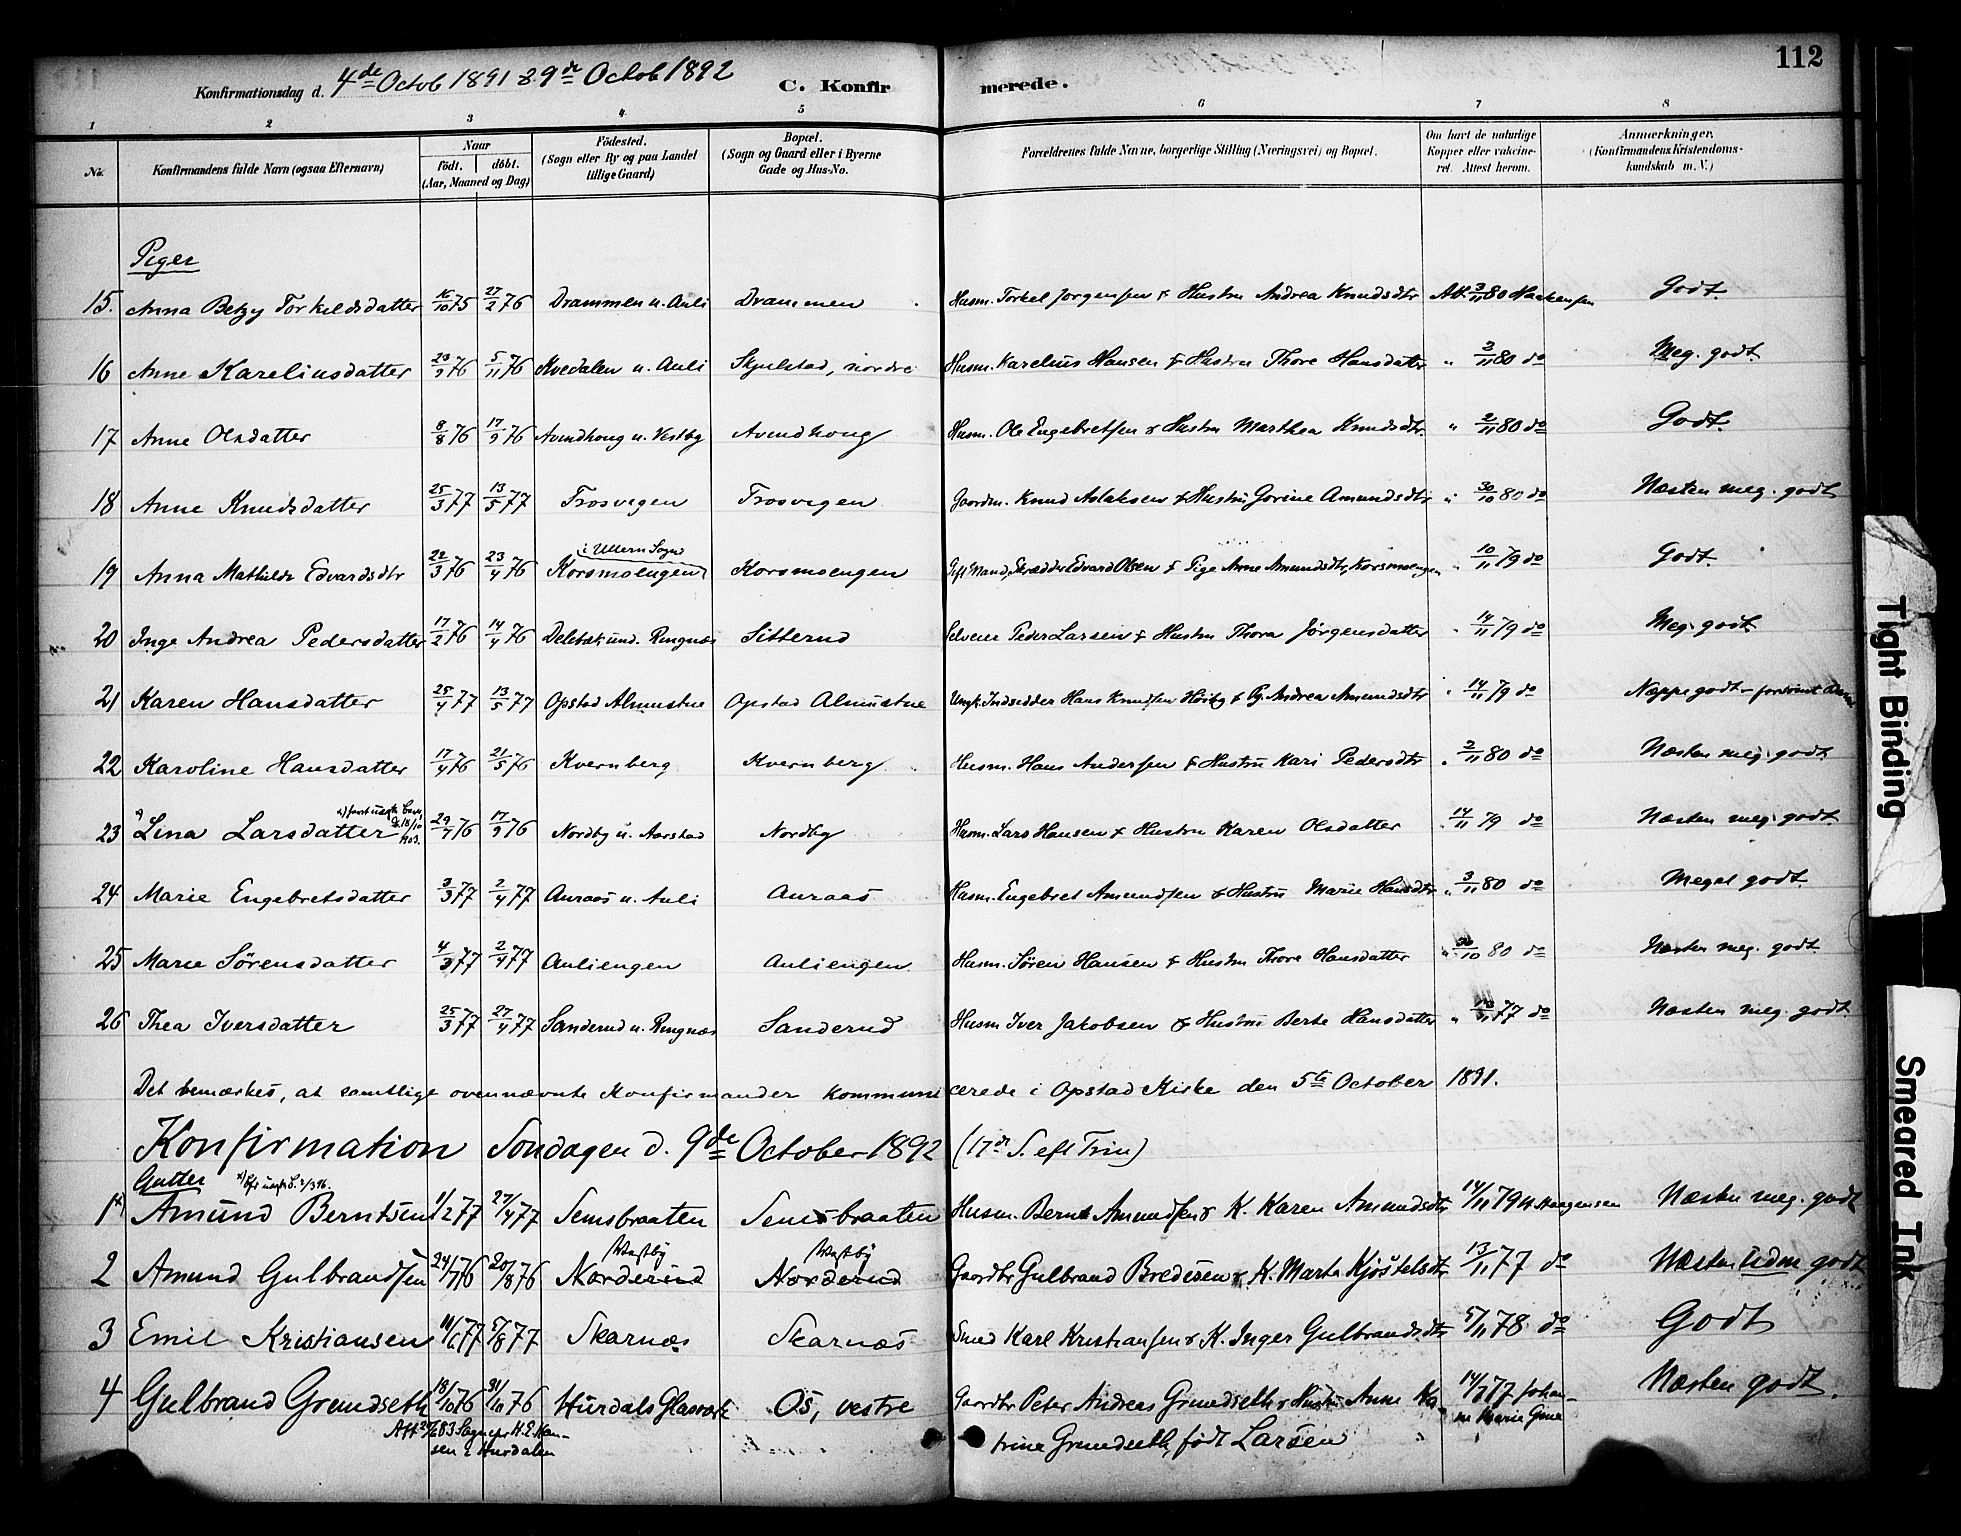 112
Konfirmationsdag d. 4de Octob 1891 & 9de Octob 1892 C. Konfirmerede.
1 2 3 4 5 6 7 8
No. Konfirmandens fulde Navn (ogsaa Efternavn) Naar födt. döbt. (Aar, Maaned og Dag) Födested. (Sogn eller By og paa Landet tillige Gaard) Bopæl. (Sogn og Gaard eller i Byerne Gade og Hus-No. Forældrenes fulde Navne, borgerlige Stilling (Næringsvei) og Bopæl. Om havt de naturlige Kopper eller vaccineret. Attest herom. Anmærkninger. (Konfirmandens Kristendomskundskab m. V.)
Piger
15. Anna Betzy Torkeldsdatter 16/10 75 27/2 76 Drammen u. Auli Drammen Husm. Torkel Jørgensen & Hustru Andrea Knudsdtr Att. 3/11 80 Haakensen Godt.
16 Anne Kareliusdatter 23/9 76 5/11 76 Kvedalen u. Auli Skjulstad, nordre Husm. Karelius Hansen & Hustru Thore Hansdatter " 2/11 80 do Meg. godt.
17 Anne Olsdatter 8/8 76 17/9 76 Avindhoug u. Vestby Avindhoug Husm. Ole Engebretsen & Hustru Marthea Knudsdtr. " 2/11 80 do Godt.
18 Anne Knudsdatter 25/3 77 13/5 77 Trosvigen Trosvigen Gaardm. Knud Aslaksen & Hustru Gorine Amundsdtr " 30/10 80 do Næsten meg. godt
19 Anna Mathilde Edvardsdtr 22/3 76 23/4 76 i Ullern Sogn Korsmoengen Korsmoengen Gift Mand, Skrædder Edvard Olsen & Pige Anne Amundsdtr, Korsmoengen " 10/11 79 do Godt.
20 Inge Andrea Pedersdatter 17/2 76 14/4 76 Delebæk und. Ringnæs Sitterud Selveier Peder Larsen & Hustru Thora Jørgensdatter " 14/11 79 do Meg. godt
21 Karen Hansdatter 25/4 77 13/5 77 Opstad Almustue Opstad Almustue Ungk. Indsidder Hans Knudsen Høiby & Pg. Andrea Amundsdtr " 14/11 79 do Neppe godt -
22 Karoline Hansdatter 17/4 76 21/5 76 Kvernberg Kvernberg Husm. Hans Andersen & Hustru Kari Pedersdtr " 2/11 80 do Næsten meg. godt.
23 Lina Larsdatter 29/7 76 17/9 76 Nordby u. Aarstad Nordby Husm. Lars Hansen & Hustru Karen Olsdatter " 14/11 79 do Næsten meg. godt.
24 Marie Engebretsdatter 3/3 77 2/4 77 Auraas u. Auli Auraas Husm. Engebret Amundsen & Hustru Marie Hansdtr " 3/11 80 do Meget godt.
25 Marie Sörensdatter 4/3 77 2/4 77 Auliengen Auliengen Husm. Sören Hansen & Hustru Thore Hansdatter " 30/10 80 do Næsten meg. godt
26 Thea Iversdatter 25/3 77 27/4 77 Sanderud u. Ringnæs Sanderud Husm Iver Jakobsen & Hustru Berte Hansdatter " 77 do Næsten meg. godt.
Det bemærkes, at samtlige ovennævnte Konfirmander kommunicerede i Opstad Kirke den 5te October 1891.
Konfirmation Søndagen d. 9de October 1892 (17de S. eft Trin)
Gutter
1 Amund Berntsen 1/2 77 27/4 77 Semsbraaten Semsbraaten Husm. Bernt Amundsen & K. Karen Amundsdtr 14/11 79 Haagensen Næsten meg. godt
2 Amund Gulbrandsen 24/7 76 20/8 76 Vestby Norderud Vestby Norderud Gaardbr Gulbrand Bredesen & K. Marta Kjöstelsdtr 13/11 77 do Næsten udm godt
3 Emil Kristiansen 14/6 77 5/8 77 Skarnæs Skarnæs Smed Karl Kristiansen & K. Inger Gulbrandsdtr 5/11 78 do Godt
4 Gulbrand Grundseth 18/10 76 31/10 76 Hurdals Glasværk Os, vestre Gaardbr Peter Andreas Grundseth & Hustru Anne Ka- 14/7 77 Johan- Næsten godt.
trine Grundseth, født Larsen ne Marie
Sognepr H. E. Hansen i Hurdalen
Tight Binding
Smeared Ink